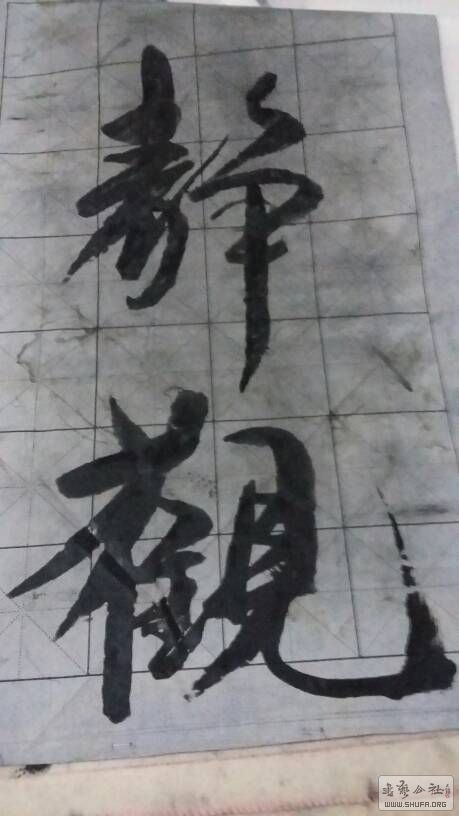 靜
觀
书法公社
WWW.SHUFA.ORG